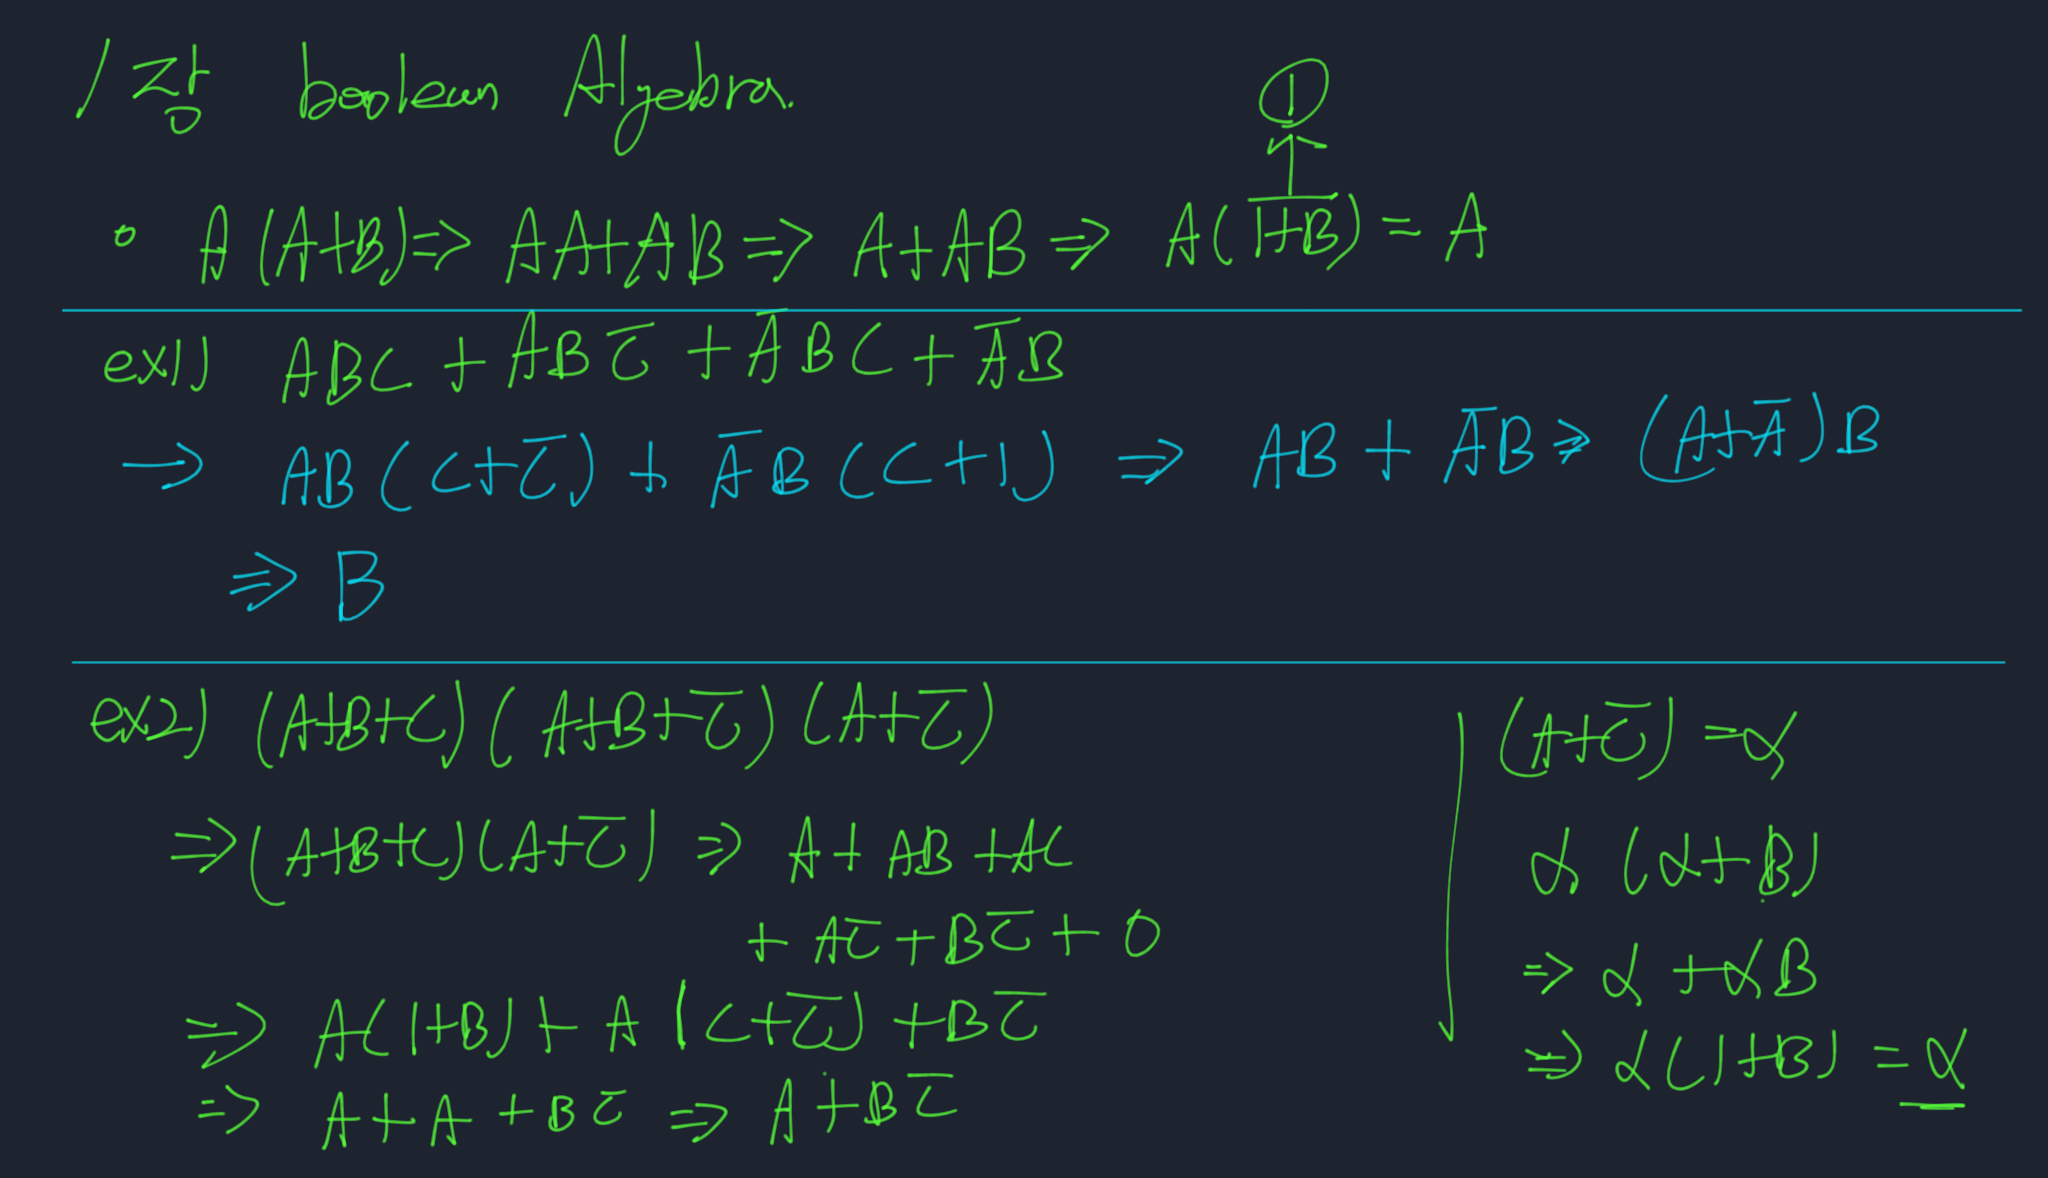 / 2장 boolean Algebra.
①
° A(A+B) ⇒ AA+AB ⇒ A+AB ⇒ A(1+B) = A
ex1) ABC + ABC̅ + A̅BC + A̅B
→ AB(C+C̅) + A̅B(C+1) ⇒ AB + A̅B ⇒ (A+A̅)B
⇒ B
ex2) (A+B+C)(A+B+C̅)(A+C̅)
⇒ (A+B+C)(A+C̅) ⇒ A + AB + AC
+ AC̅ + BC̅ + 0
⇒ A(1+B) + A(C+C̅) + BC̅
⇒ A + A + BC̅ ⇒ A + BC̅
(A+C̅) = α
α(α+B)
⇒ α + αB
⇒ α(1+B) = α